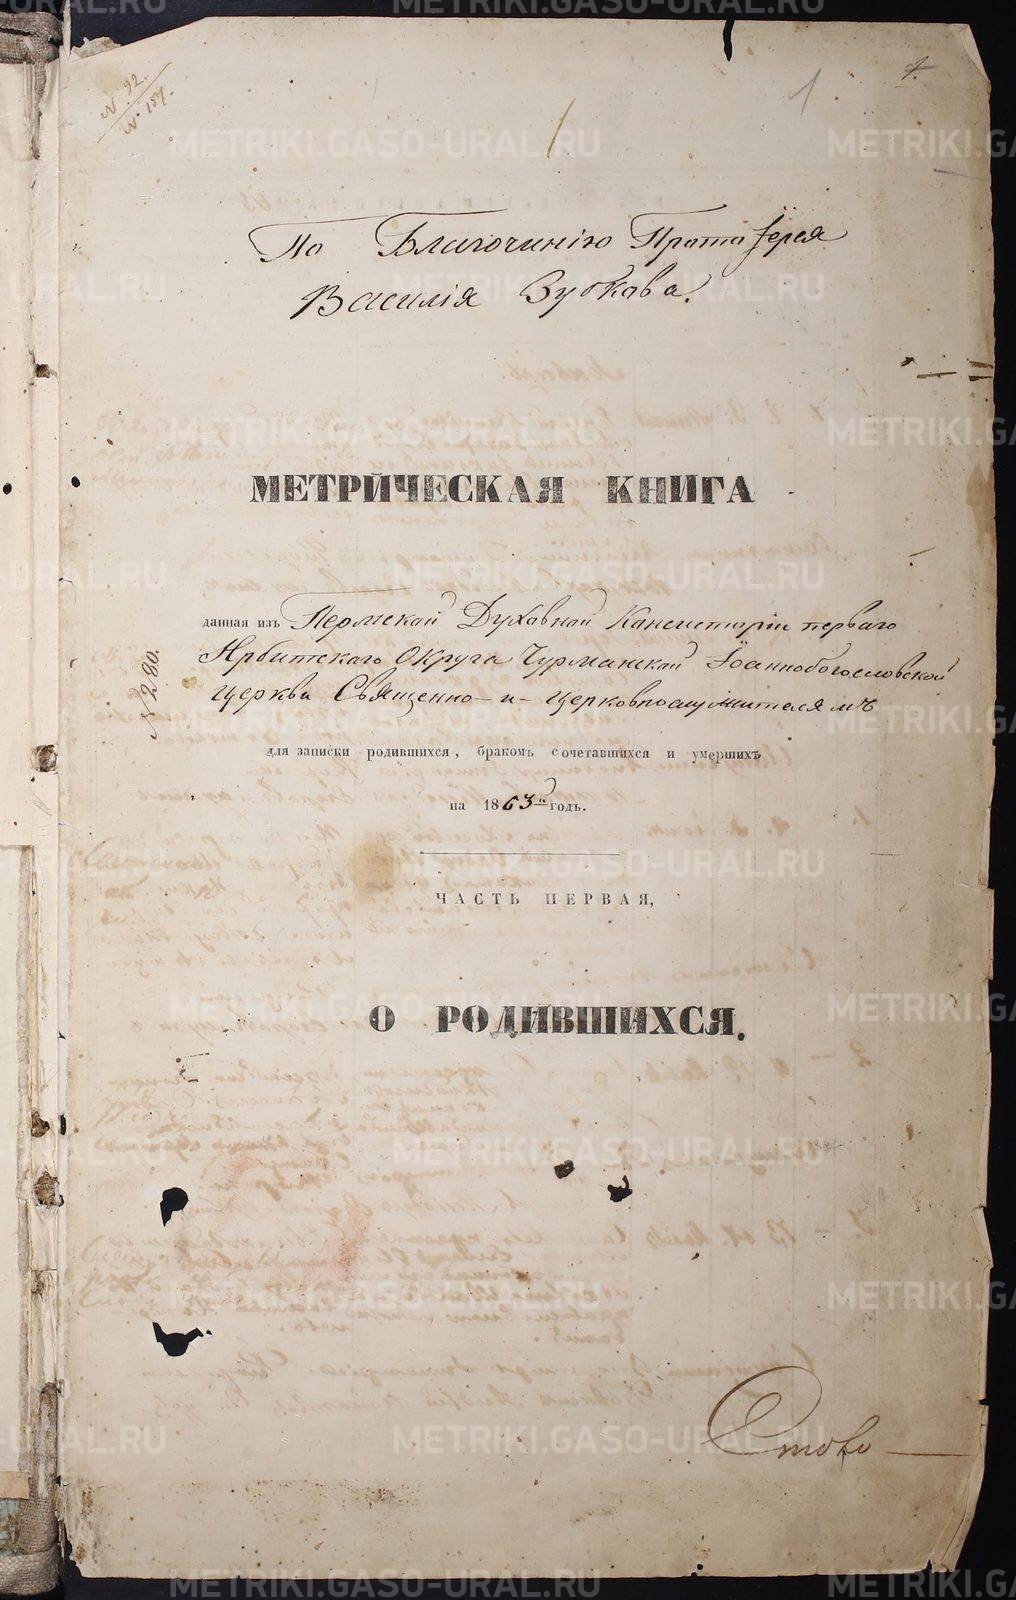 N 92.
N. 157.
1
По Благочинію Прото Іерея
Василія Зубкова.
МЕТРИ́ЧЕСКАЯ КНИГА
данная изъ Пермской Духовной Консисторіи перваго
Ирбитскаго Округа Чурманской Іоаннобогословской
церкви Священно-и-церковнослужителямъ
N 280.
для записки родившихся, бракомъ сочетавшихся и умершихъ
на 1863й годъ.
ЧАСТЬ ПЕРВАЯ,
О РОДИВШИХСЯ.
METRIKI.GASO-URAL.RU